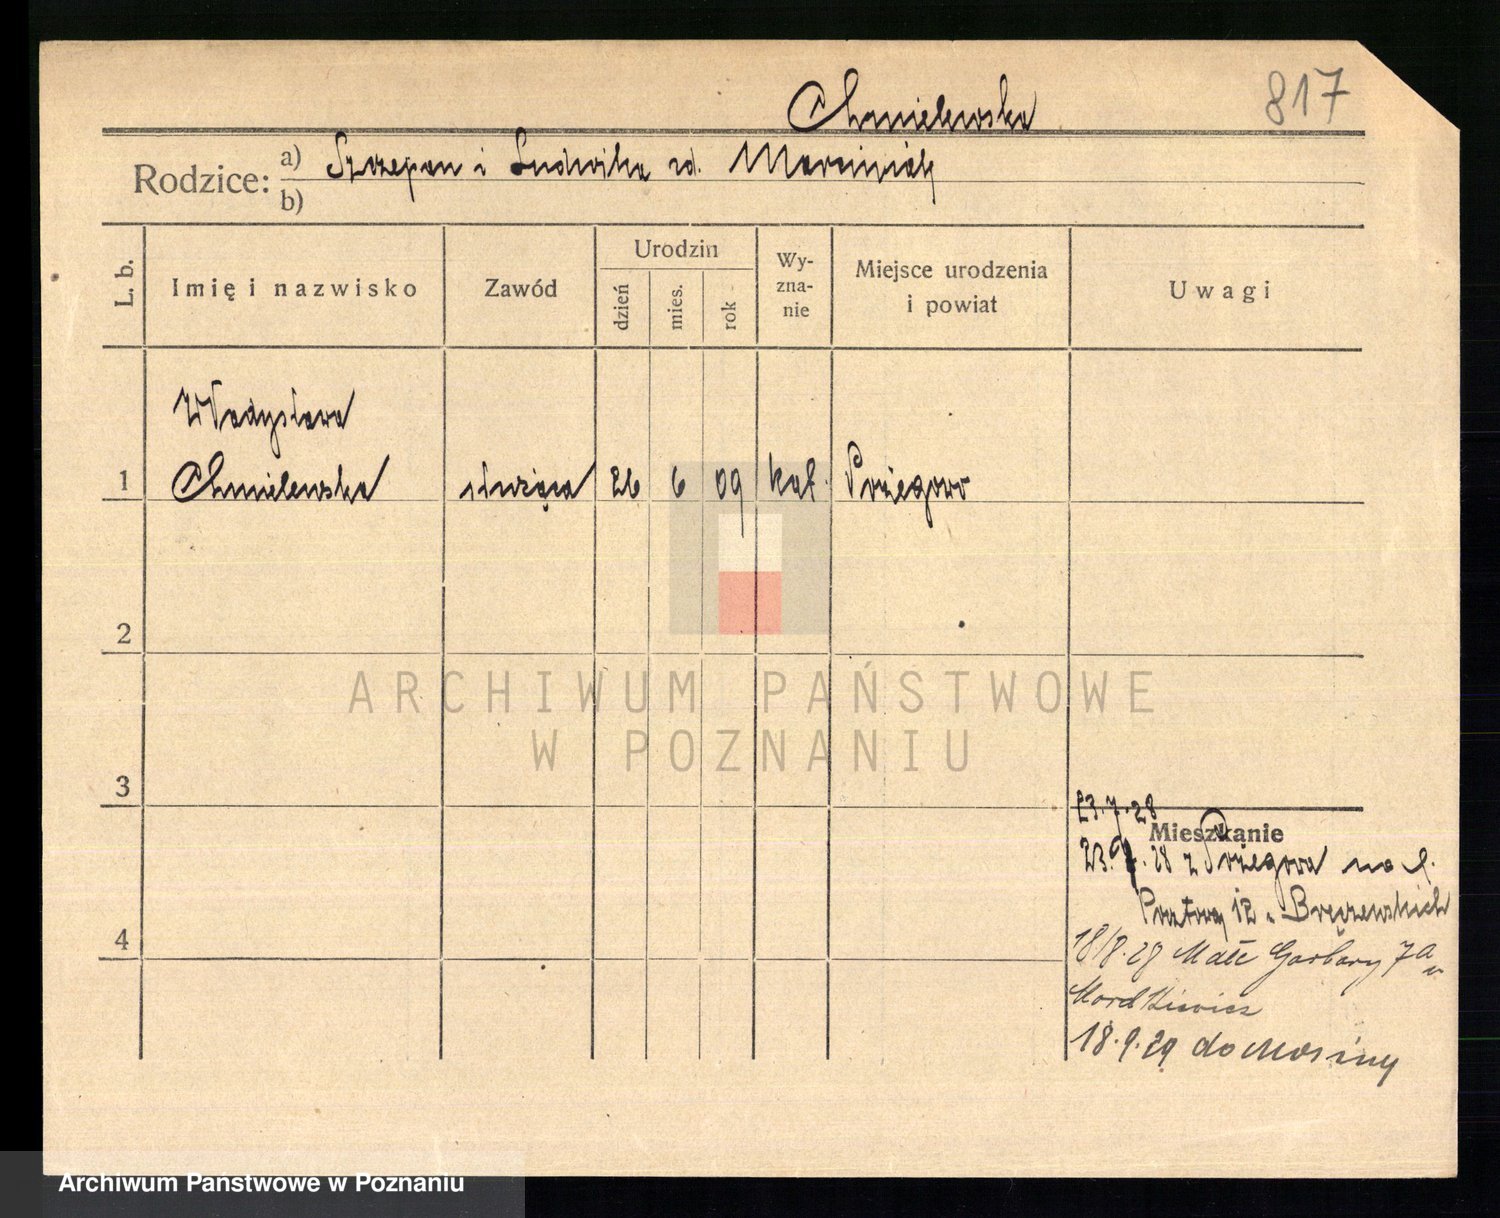 Chmielewska 817
Rodzice: a) Szczepan i Ludwika zd. Marciniak
b)
L. b. Imię i nazwisko Zawód Urodzin dzień mies. rok Wy-zna-nie Miejsce urodzenia i powiat Uwagi
Władysława
1 Chmielewska służąca 26 6 09 kat. Pożegowo
2
ARCHIWUM PAŃSTWOWE
W POZNANIU
3
23.7.28
Mieszkanie
28 z Pożegowa na
12 u Bręczewskich
4
18/8.28 Małe Garbary 7a u
Mordkiewicz
18.9.29 do Mosiny
Archiwum Państwowe w Poznaniu